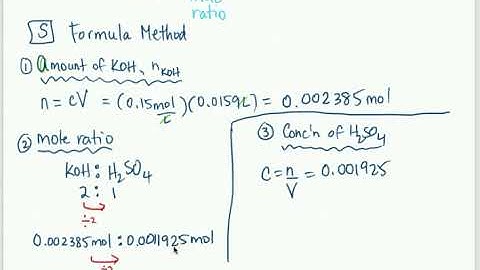 ratio
S Formula Method
① Amount of KOH, nKOH
n = cV = (0.15mol/L)(0.0159L) = 0.002385mol
② mole ratio
KOH : H₂SO₄
2 : 1
÷2
0.002385mol : 0.0011925mol
÷2
③ Conc'n of H₂SO₄
C = n/V = 0.001925